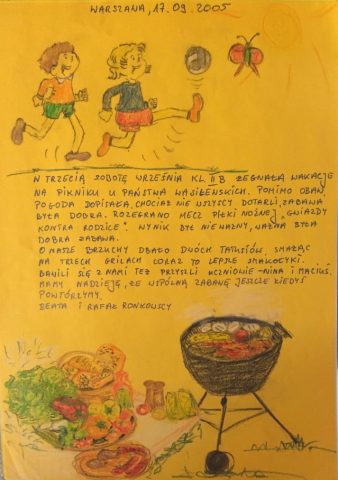 WARSZAWA, 17.09.2005
W TRZECIĄ SOBOTĘ WRZEŚNIA KL. II B ŻEGNAŁA WAKACJE
NA PIKNIKU U PAŃSTWA WASILEŃSKICH. POMIMO OBAW
POGODA DOPISAŁA, CHOCIAŻ NIE WSZYSCY DOTARLI, ZABAWA
BYŁA DOBRA. ROZEGRANO MECZ PIŁKI NOŻNEJ „GWIAZDY
KONTRA RODZICE”. WYNIK BYŁ NIEWAŻNY, WAŻNA BYŁA
DOBRA ZABAWA.
O NASZE BRZUCHY DBAŁO DWÓCH TATUSIÓW SMAŻĄC
NA TRZECH GRILACH CORAZ TO LEPSZE SMAKOŁYKI.
BAWILI SIĘ Z NAMI TEŻ PRZYSZLI UCZNIOWIE - NINA I MACIUŚ.
MAMY NADZIEJĘ, ŻE WSPÓLNĄ ZABAWĘ JESZCZE KIEDYŚ
POWTÓRZYMY.
BEATA I RAFAŁ RONKOWSCY